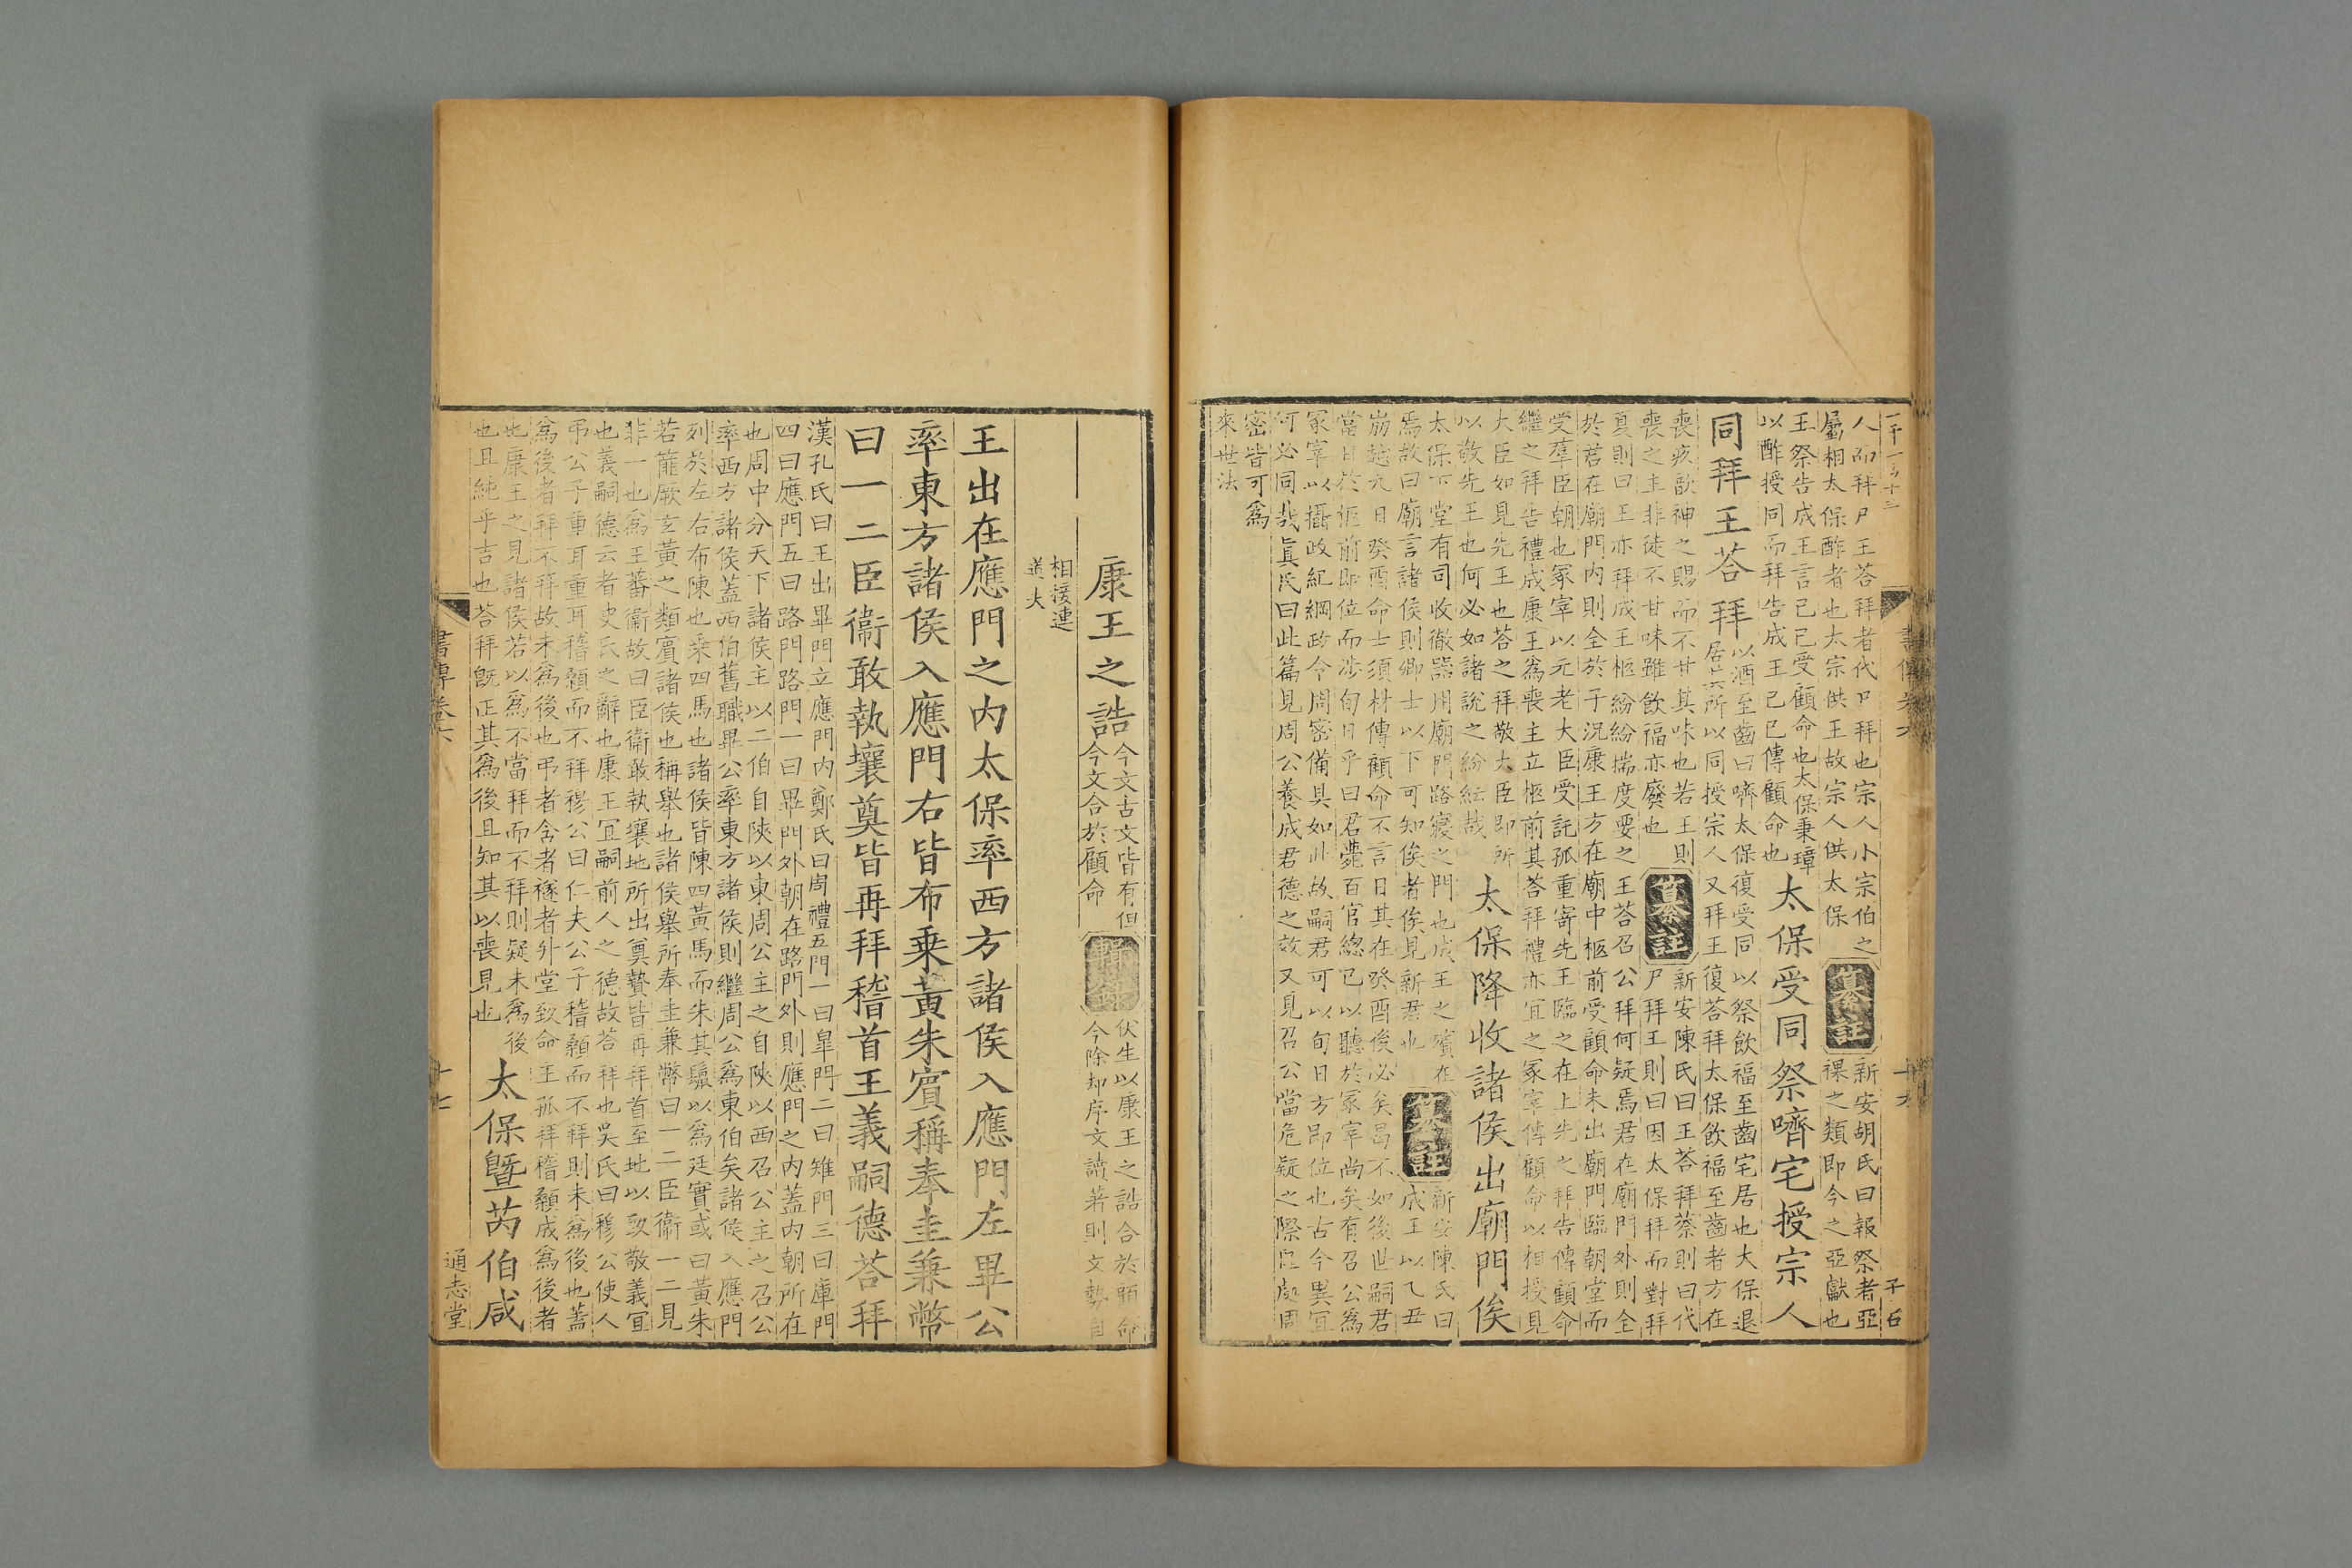 一千一百十三
人而拜尸王荅拜者代尸拜也宗人小宗伯之
屬相太保酢者也太宗供王故宗人供太保
纂註
新安胡氏曰報祭者亞
祼之類即今之亞獻也
王祭告成王言已已受顧命也太保秉璋
以酢授同而拜告成王已已傳顧命也
太保受同祭嚌宅授宗人
同拜王荅拜
以酒至齒曰嚌太保復受同以祭飲福至齒宅居也太保退
居其所以同授宗人又拜王復荅拜太保飲福至齒者方在
喪疚歆神之賜而不甘其味也若王則
喪之主非徒不甘味雖飲福亦廢也
纂註
新安陳氏曰王荅拜蔡則曰代
尸拜王則曰因太保拜而對拜
夏則曰王亦拜成王柩紛紛揣度要之王荅召公拜何疑焉君在廟門外則全
於君在廟門内則全於子況康王方在廟中柩前受顧命未出廟門臨朝堂而
受羣臣朝也冢宰以元老大臣受託孤重寄先王臨之在上先之拜告傳顧命
繼之拜告禮成康王為喪主立柩前其荅拜禮亦宜之冢宰傳顧命以相授見
大臣如見先王也荅之拜敬大臣即所
以敬先王也何必如諸說之紛紜哉
太保降收諸侯出廟門俟
太保下堂有司收徹器用廟門路寢之門也成王之殯在
焉故曰廟言諸侯則卿士以下可知俟者俟見新君也
纂註
新安陳氏曰
成王以乙丑
崩越九日癸酉命士須材傳顧命不言日其在癸酉後必矣曷不如後世嗣君
當日於柩前即位而涉旬日乎曰君薨百官緫已以聽於冢宰尚矣有召公為
冢宰以攝政紀綱政令周密備具如此故嗣君可以旬日方即位也古今異宜
何必同哉眞氏曰此篇見周公養成君德之效又見召公當危疑之際區處周
密皆可為
來世法
書傳卷六
十六
康王之誥
今文古文皆有但
今文合於顧命
輯錄
伏生以康王之誥合於顧命
今除却序文讀著則文勢自
相接連
道夫
王出在應門之内太保率西方諸侯入應門左畢公
率東方諸侯入應門右皆布乗黃朱賔稱奉圭兼幣
曰一二臣衞敢執壤奠皆再拜稽首王義嗣德荅拜
漢孔氏曰王出畢門立應門内鄭氏曰周禮五門一曰臯門二曰雉門三曰庫門
四曰應門五曰路門路門一曰畢門外朝在路門外則應門之内蓋内朝所在
也周中分天下諸侯主以二伯自陝以東周公主之自陝以西召公主之召公
率西方諸侯蓋西伯舊職畢公率東方諸侯則繼周公為東伯矣諸侯入應門
列於左右布陳也乗四馬也諸侯皆陳四黃馬而朱其鬛以為廷實或曰黃朱
若篚厥玄黃之類賔諸侯也稱舉也諸侯舉所奉圭兼幣曰一二臣衞一二見
非一也為王蕃衞故曰臣衞敢執壤地所出奠贄皆再拜首至地以致敬義宜
也義嗣德云者史氏之辭也康王宜嗣前人之德故荅拜也吳氏曰穆公使人
弔公子重耳重耳稽顙而不拜穆公曰仁夫公子稽顙而不拜則未為後也蓋
為後者拜不拜故未為後也弔者含者襚者升堂致命主孤拜稽顙成為後者
也康王之見諸侯若以為不當拜而不拜則疑未為後
也且純乎吉也荅拜旣正其為後且知其以喪見也
太保曁芮伯咸
書傳卷六
十七
通志堂